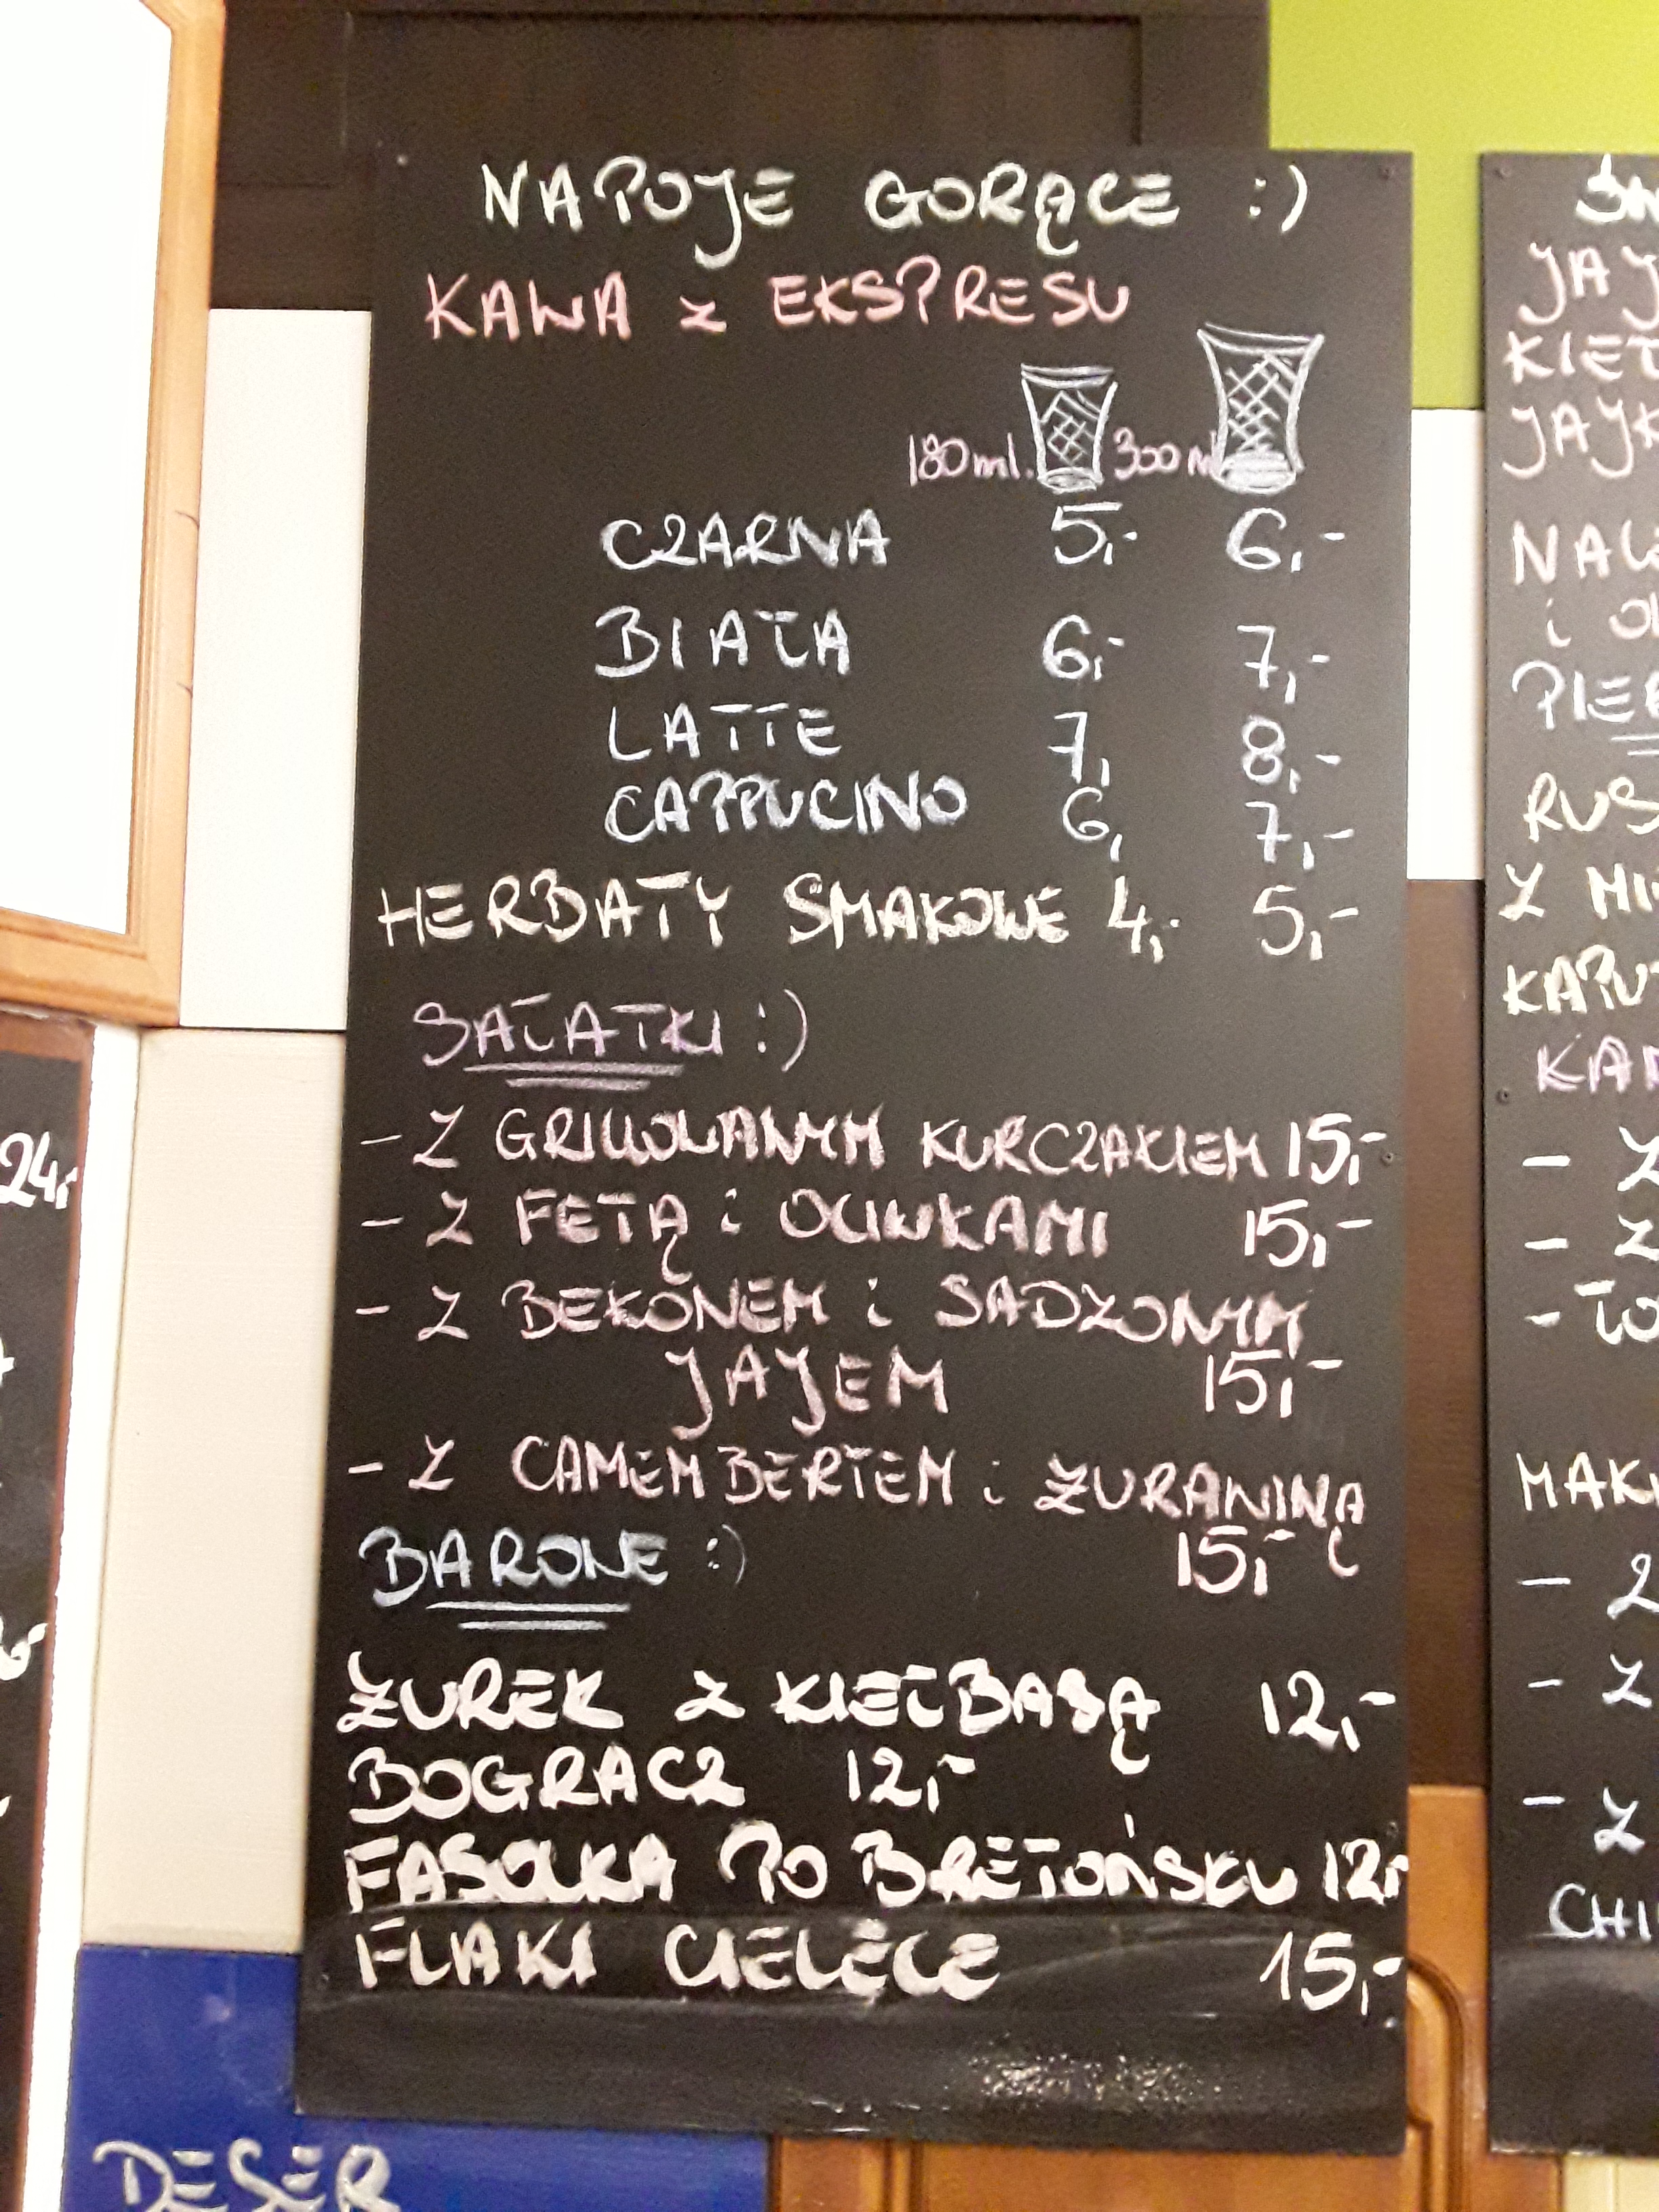 NAPOJE GORĄCE :)
KAWA z EKSPRESU
180ml. 300 ml
CZARNA 5,- 6,-
BIAŁA 6,- 7,-
LATTE 7, 8,-
CAPPUCINO 6, 7,-
HERBATY SMAKOWE 4,- 5,-
SAŁATKI :)
- Z GRILLOWANYM KURCZAKIEM 15,-
- Z FETĄ i OLIWKAMI 15,-
- Z BEKONEM i SADZONYM
JAJEM 15,-
- Z CAMEMBERTEM i ŻURAWINĄ
15,-
BAROWE :)
ŻUREK Z KIEŁBASĄ 12,-
BOGRACZ 12,-
FASOLKA PO BRETOŃSKU 12,-
FLAKI CIELĘCE 15,-
24,-
DESER
JAJ
KIEŁ
JAJK
NALE
i
PIER
RUS
Z MI
KAPU
KAN
- Z
- Z
- ŁO
MAK
- Z
- Z
- Z
CHI